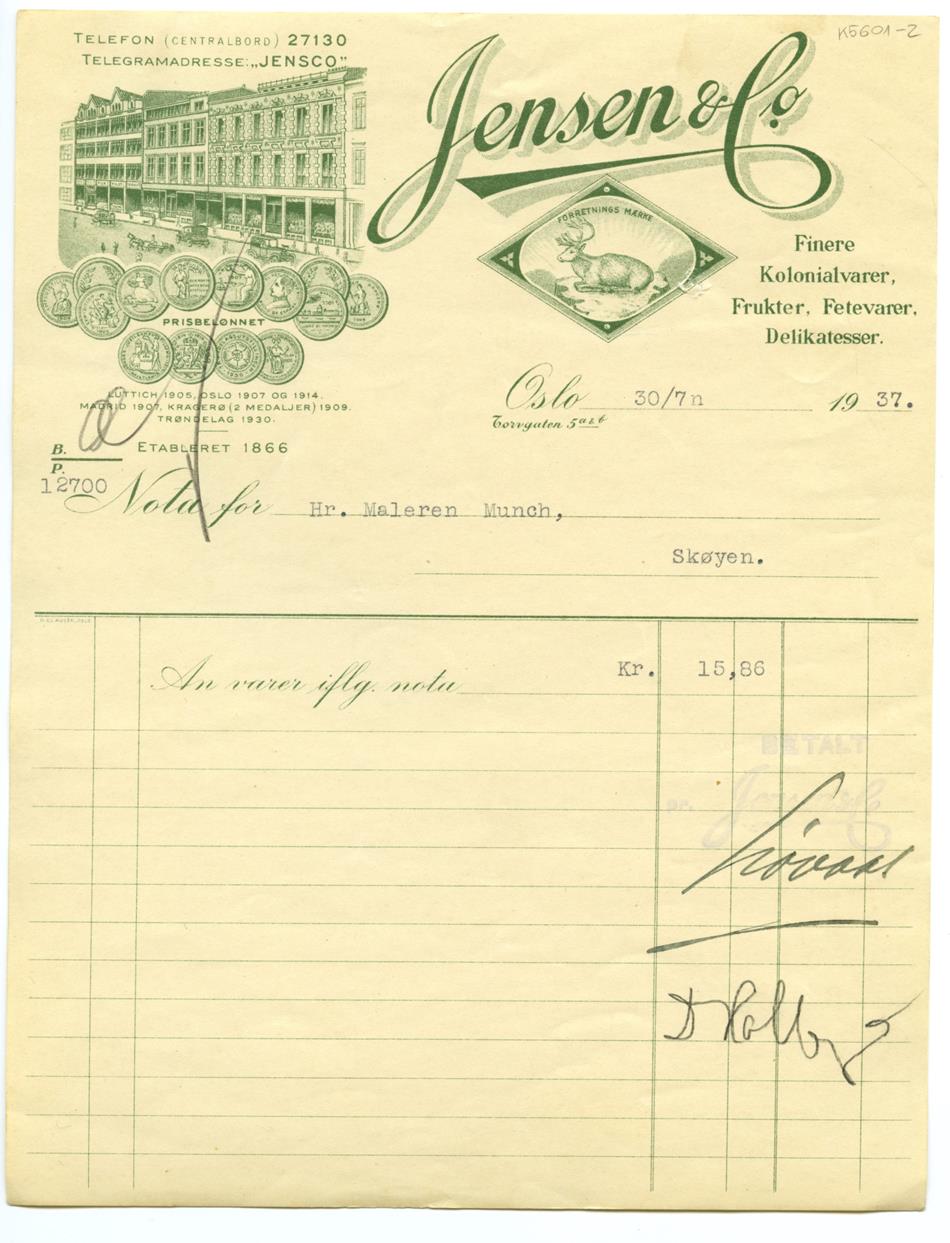 K5601-2
TELEFON (CENTRALBORD) 27130
TELEGRAMADRESSE: „JENSCO”
Jensen & Co.
FORRETNINGS MÆRKE
Finere
Kolonialvarer,
Frukter, Fetevarer,
Delikatesser.
PRISBELØNNET
LÜTTICH 1905, OSLO 1907 OG 1914.
MADRID 1907, KRAGERØ (2 MEDALJER) 1909.
TRØNDELAG 1930.
ETABLERET 1866
Oslo 30/7n 1937.
Torvgaten 5 a & b
B.
P.
12700
Nota for Hr. Maleren Munch,
Skøyen.
An varer iflg. nota Kr. 15,86
BETALT
pr. Jensen & Co